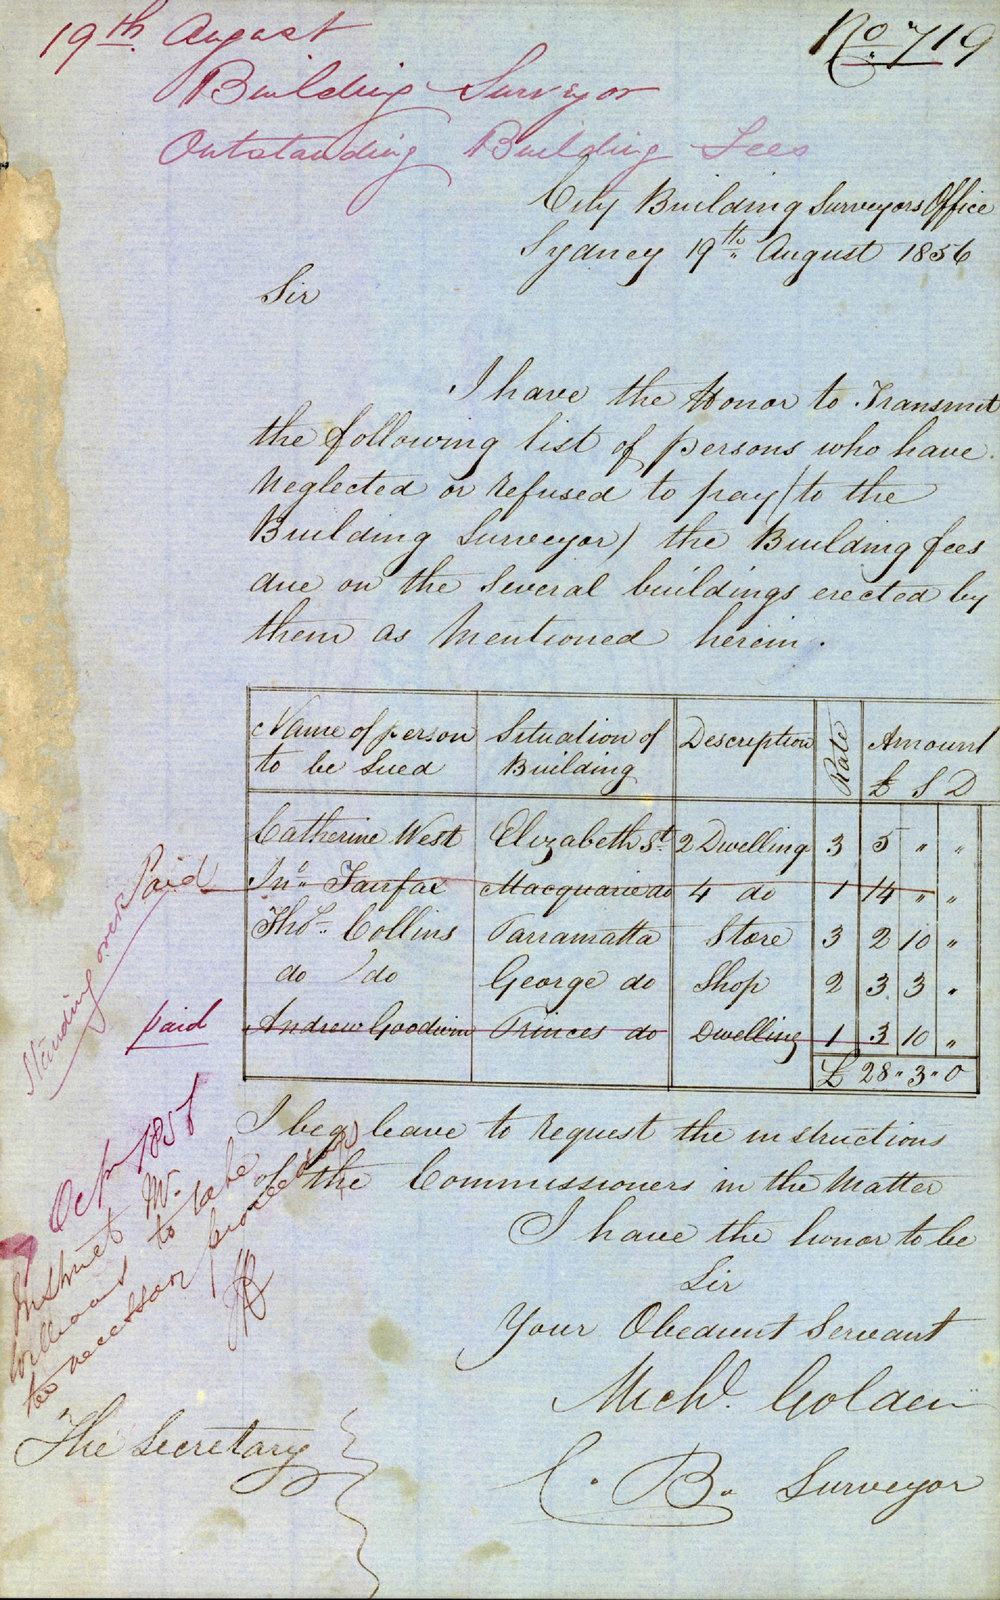 19th August
No. 719
Building Surveyor
Outstanding Building Fees
City Building Surveyors Office
Sydney 19th August 1856
Sir
I have the Honor to Transmit
the following list of persons who have
Neglected or refused to pay (to the
Building Surveyor) the Building fees
due on the several buildings erected by
them as Mentioned herein.
Name of person to be Sued | Situation of Building | Description | Rate | Amount £ S D
Catherine West | Elizabeth St. | 2 Dwelling | 3 | 5 " "
Paid Jno. Fairfax | Macquarie do | 4 do | 1 | 14 " "
Thos. Collins | Parramatta | Store | 3 | 2 10 "
do do | George do | Shop | 2 | 3 3 "
paid Andrew Goodwin | Princes do | Dwelling | 1 | 3 10 "
£ 28 " 3 " 0
Standing over
I beg leave to request the instructions
of the Commissioners in the Matter
I have the honor to be
Sir
Your Obedient Servant
Michl. Golden
C. B. Surveyor
Instruct Mr.
Williams to take
necessary proceedings
The Secretary